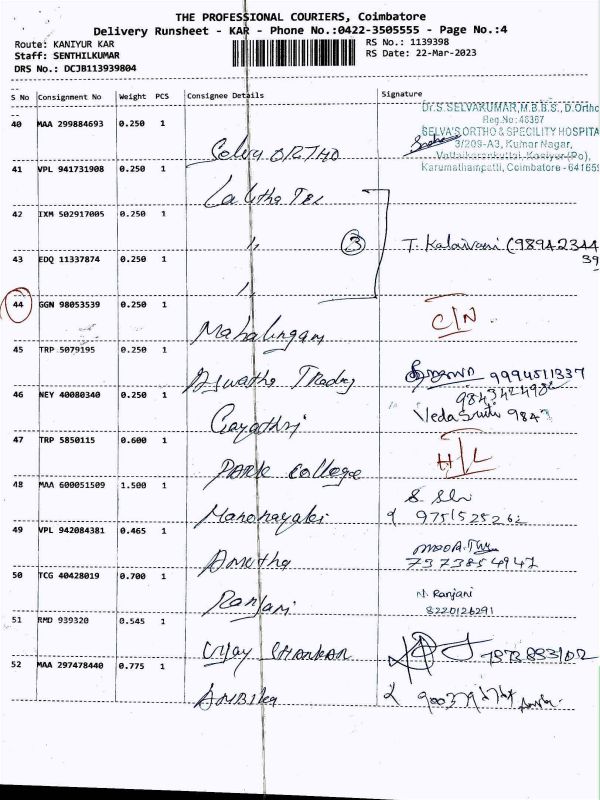 THE PROFESSIONAL COURIERS, Coimbatore
Delivery Runsheet - KAR - Phone No.:0422-3505555 - Page No.:4
Route: KANIYUR KAR
Staff: SENTHILKUMAR
DRS No.: DCJB113939804
RS No.: 1139398
RS Date: 22-Mar-2023
S No Consignment No Weight PCS Consignee Details Signature
Dr.S.SELVAKUMAR,M.B.B.S.,D.Ortho
Reg.No: 46367
SELVA'S ORTHO & SPECILITY HOSPITA
3/209-A3, Kumar Nagar,
Karumathampatti, Coimbatore - 64165
40 MAA 299884693 0.250 1
Selva ORTHO
41 VPL 941731908 0.250 1
Lalitha Tex
42 IXM 502917005 0.250 1
,, 3 T. Kalaivani (98942344
39
43 EDQ 11337874 0.250 1
,,
44 GGN 98053539 0.250 1
Mahalingam C/N
45 TRP 5079195 0.250 1
Aswatha Trading 9994511337
46 NEY 40080340 0.250 1
Gayathri
Veda 984
47 TRP 5850115 0.600 1
PARK College H/L
48 MAA 600051509 1.500 1
Manonayaki
9751525262
49 VPL 942084381 0.465 1
Amutha
7373854947
50 TCG 40428019 0.700 1
Ranjani
N. Ranjani
8220126291
51 RMD 939320 0.545 1
Vijay SHANKAR
52 MAA 297478440 0.775 1
AMBIKA